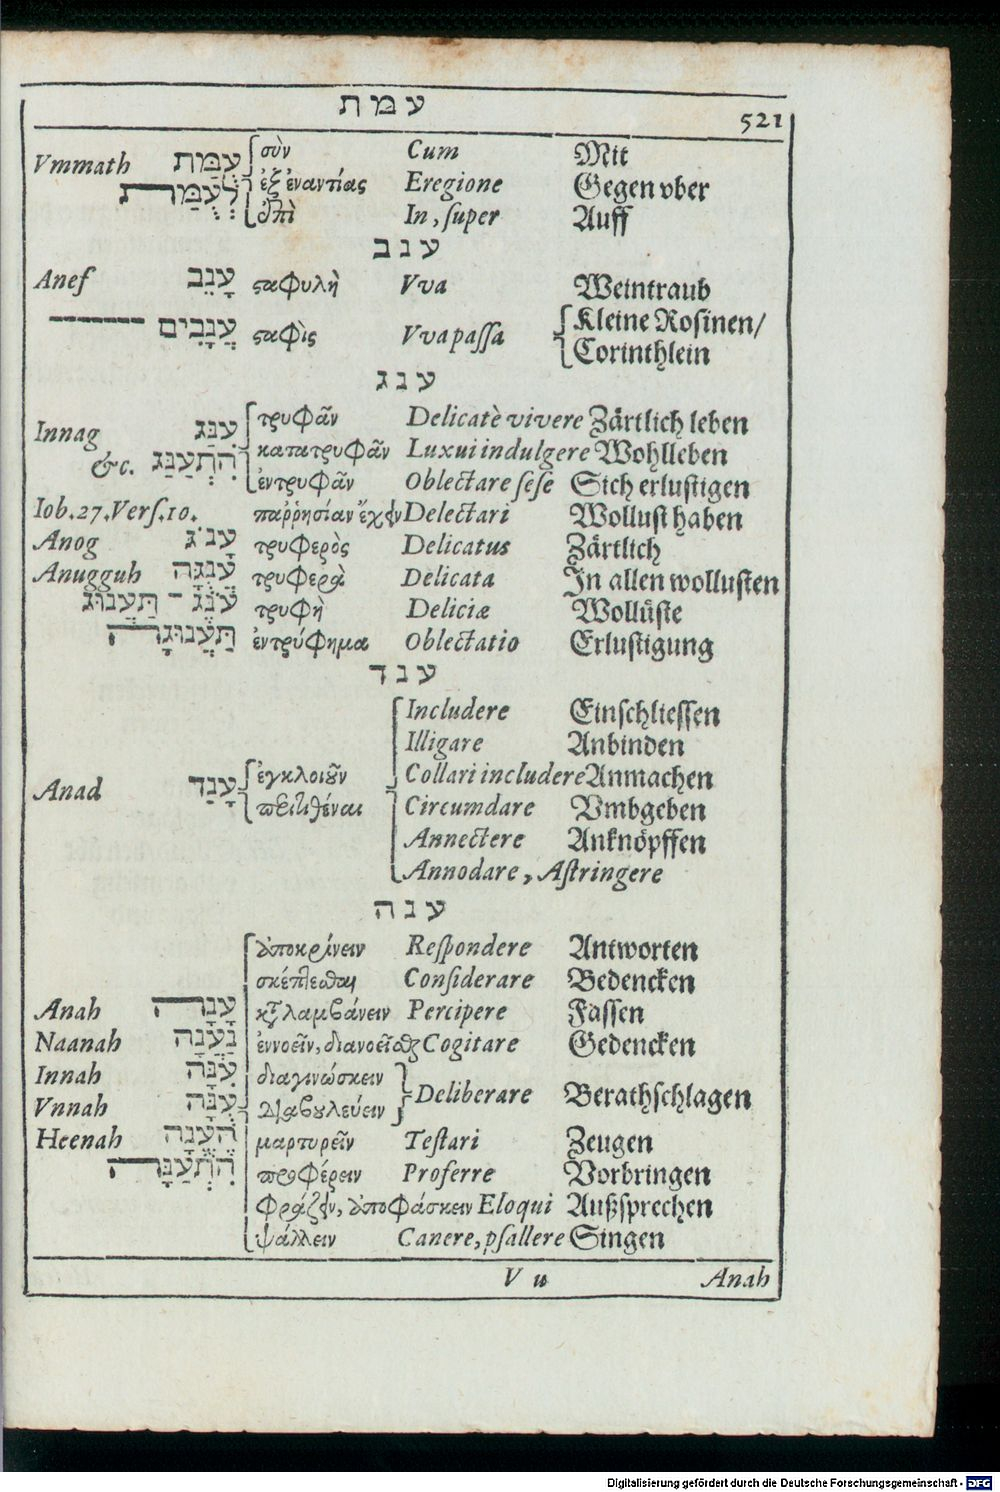 עמת 521
Vmmath עֻמַּת σὺν Cum Mit
לְעֻמַּת ἐξ ἐναντίας Eregione Gegen vber
ἐπὶ In, ſuper Auff
ענב
Anef עָנֵב ϛαφυλὴ Vva Weintraub
עֲנָבִים ϛαφὶς Vvapaſſa Kleine Roſinen/
Corinthlein
ענג
Innag עִנַּג τρυφᾶν Delicatè vivere Zärtlich leben
&c. הִתְעַנַּג κατατρυφᾶν Luxui indulgere Wohlleben
ἐντρυφᾶν Oblectare ſeſe Sich erluſtigen
Iob. 27. Verſ. 10. παῤῥησίαν ἔχειν Delectari Wolluſt haben
Anog עָנֹג τρυφερὸς Delicatus Zärtlich
Anugguh עֲנֻגָּה τρυφερὰ Delicata In allen wolluſten
עֹנֶג - תַּעֲנוּג τρυφὴ Deliciæ Wollüſte
תַּעֲנוּגָה ἐντρύφημα Oblectatio Erluſtigung
ענד
Includere Einſchlieſſen
Illigare Anbinden
Anad עָנַד ἐγκλοιοῦν Collari includere Anmachen
περιτιθέναι Circumdare Vmbgeben
Annectere Anknöpffen
Annodare, Aſtringere
ענה
ἀποκρίνειν Reſpondere Antworten
σκέπτεσθαι Conſiderare Bedencken
Anah עָנָה καταλαμβάνειν Percipere Faſſen
Naanah נַעֲנָה ἐννοεῖν, διανοεῖσθαι Cogitare Gedencken
Innah עִנָּה διαγινώσκειν
Deliberare Berathſchlagen
Vnnah עֻנָּה διαβουλεύειν
Heenah הֶעֱנָה μαρτυρεῖν Teſtari Zeugen
הִתְעַנָּה προφέρειν Proferre Vorbringen
φράζειν, ἀποφάσκειν Eloqui Außſprechen
ψάλλειν Canere, pſallere Singen
V u Anah
Digitalisierung gefördert durch die Deutsche Forschungsgemeinschaft - DFG